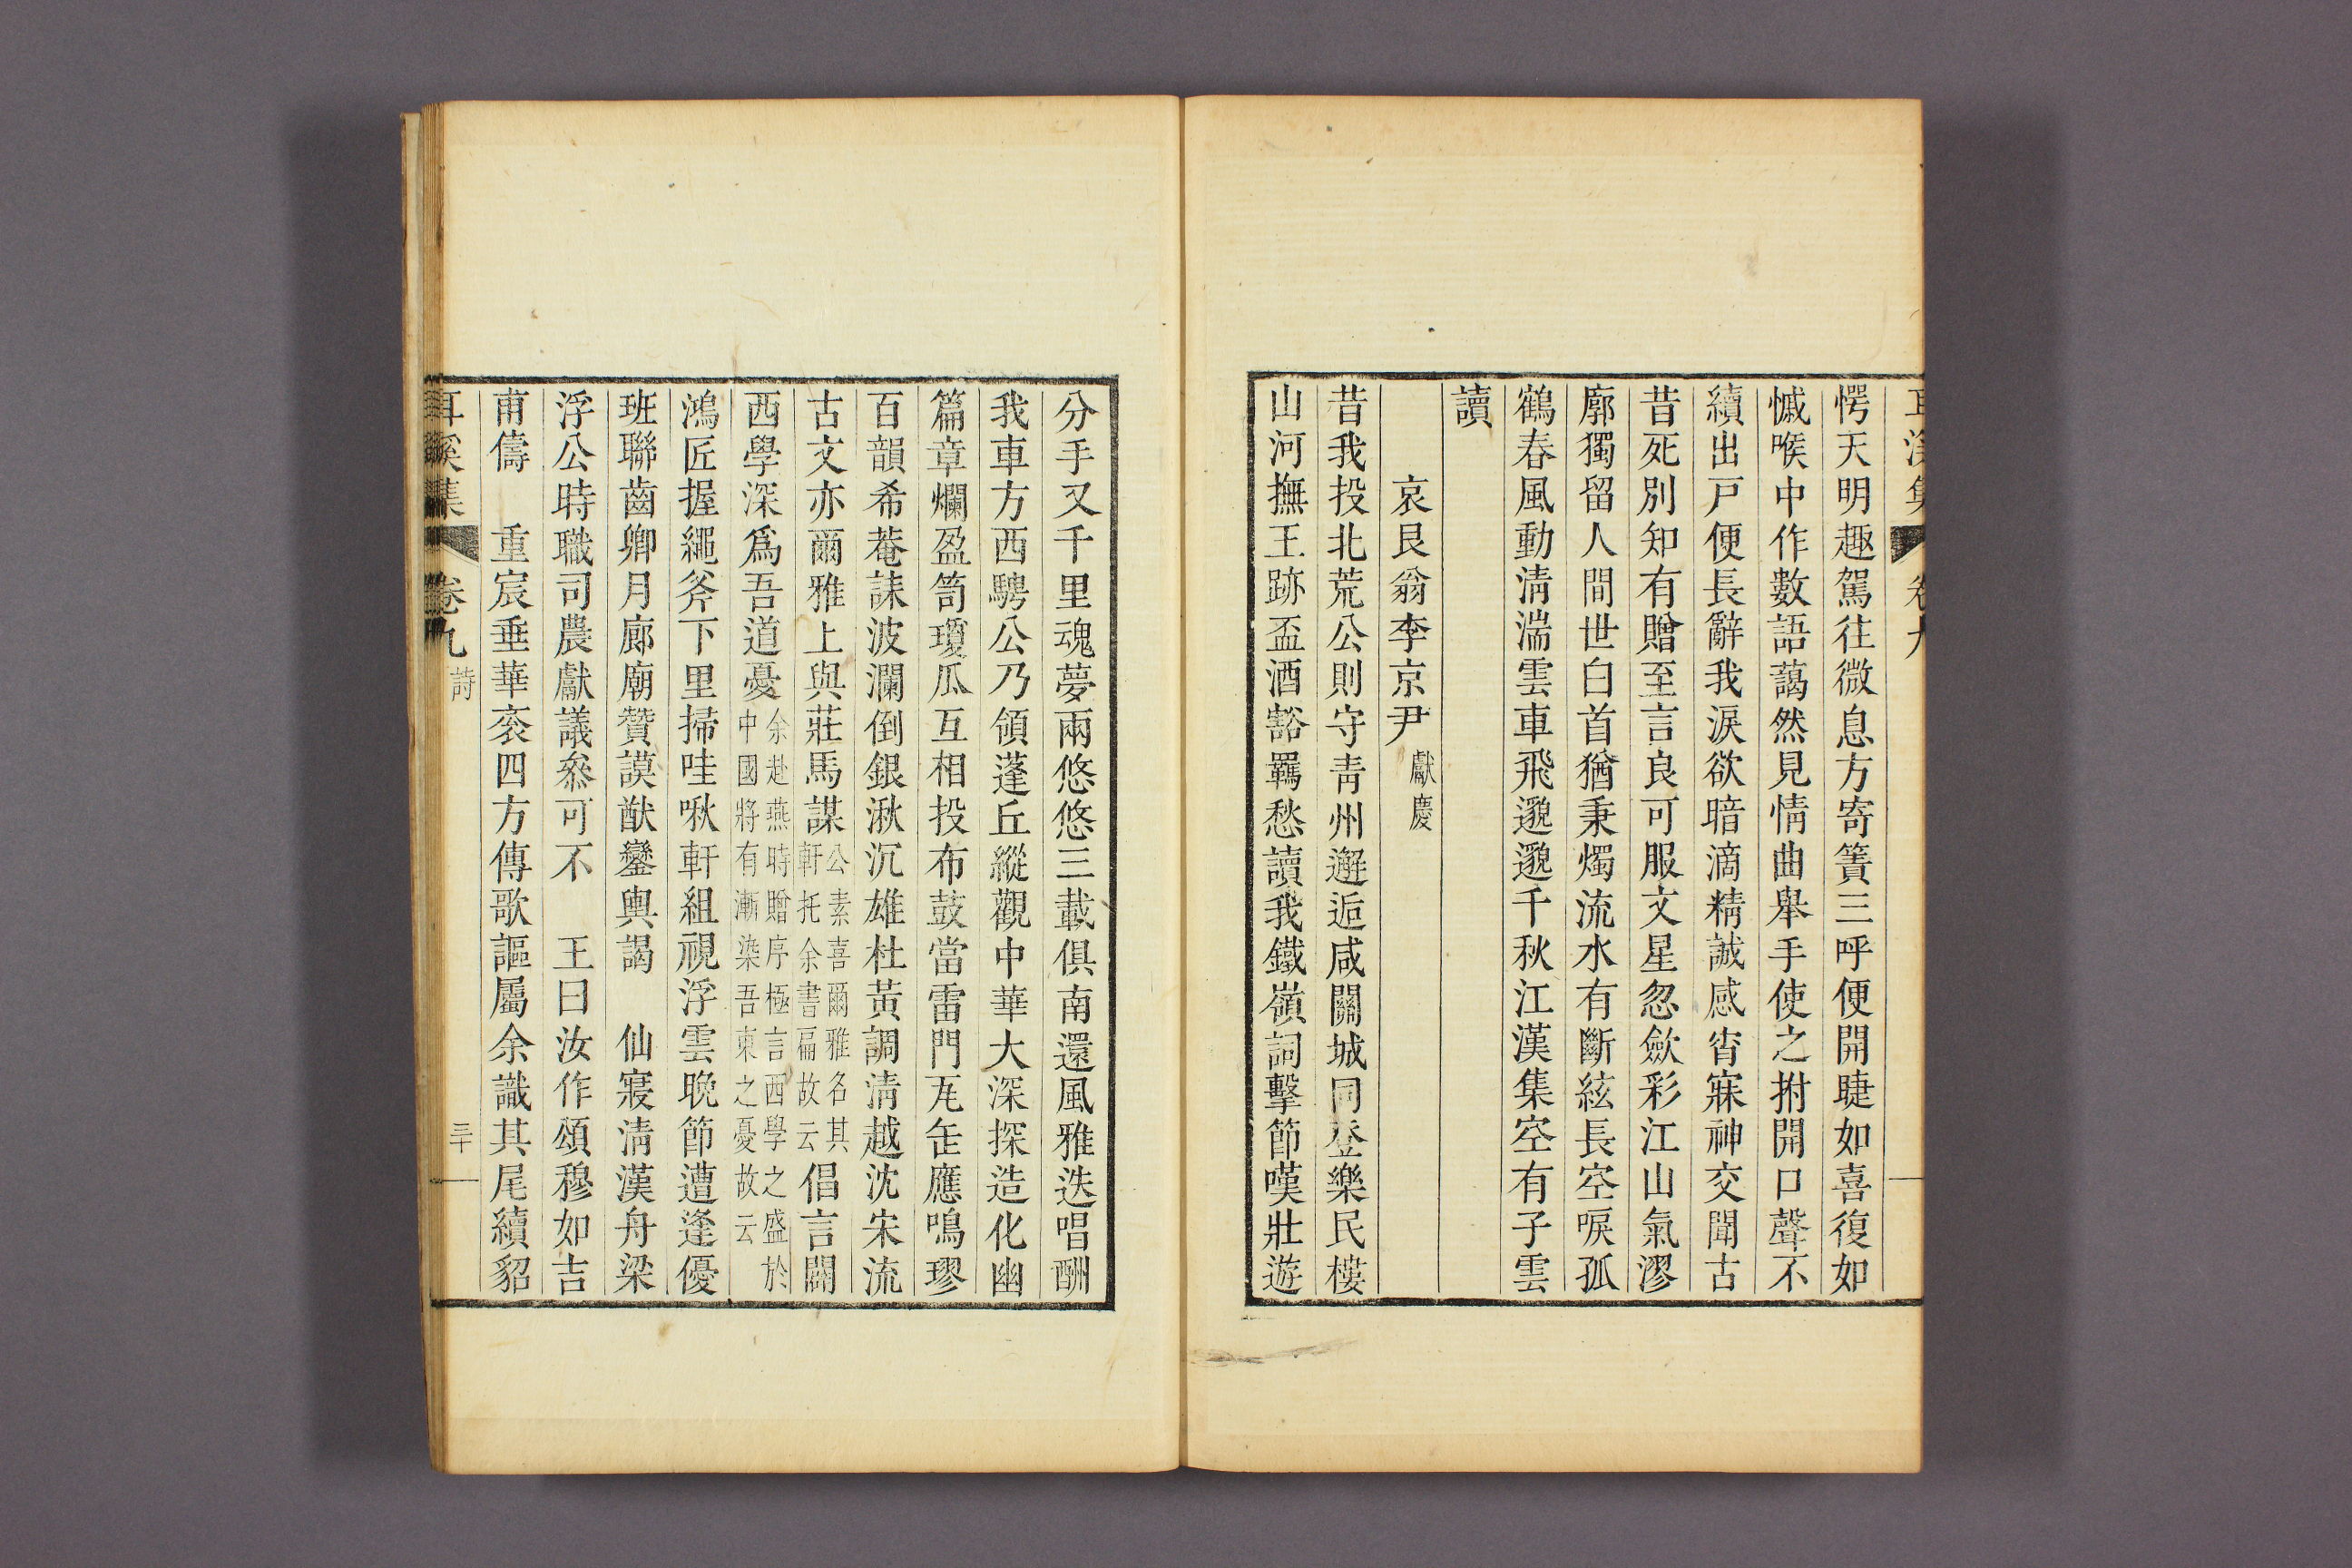 耳溪集 卷九
愕天明趣駕往微息方寄簀三呼便開睫如喜復如
慽喉中作數語藹然見情曲舉手使之拊開口聲不
續出戸便長辭我淚欲暗滴精誠感宵寐神交聞古
昔死別知有贈至言良可服文星忽歛彩江山氣漻
廓獨留人間世白首猶秉燭流水有斷絃長空唳孤
鶴春風動淸湍雲車飛邈邈千秋江漢集空有子雲
讀
哀艮翁李京尹獻慶
昔我投北荒公則守靑州邂逅咸關城同登樂民樓
山河撫王跡盃酒豁羈愁讀我鐵嶺詞擊節嘆壯遊
分手又千里魂夢兩悠悠三載俱南還風雅迭唱酬
我車方西騁公乃領蓬丘縱觀中華大深探造化幽
篇章爛盈笥瓊瓜互相投布鼓當雷門瓦缶應鳴璆
百韻希菴誄波瀾倒銀湫沉雄杜黃調淸越沈宋流
古文亦爾雅上與莊馬謀公素喜爾雅名其軒托余書扁故云倡言闢
西學深爲吾道憂余赴燕時贈序極言西學之盛於中國將有漸染吾東之憂故云
鴻匠握繩斧下里掃哇啾軒組視浮雲晩節遭逢優
班聯齒卿月廊廟贊謨猷鑾輿謁 仙寢淸漢舟梁
浮公時職司農獻議叅可不 王曰汝作頌穆如吉
甫儔 重宸垂華衮四方傳歌謳屬余識其尾續貂
耳溪集 卷九 詩 三十